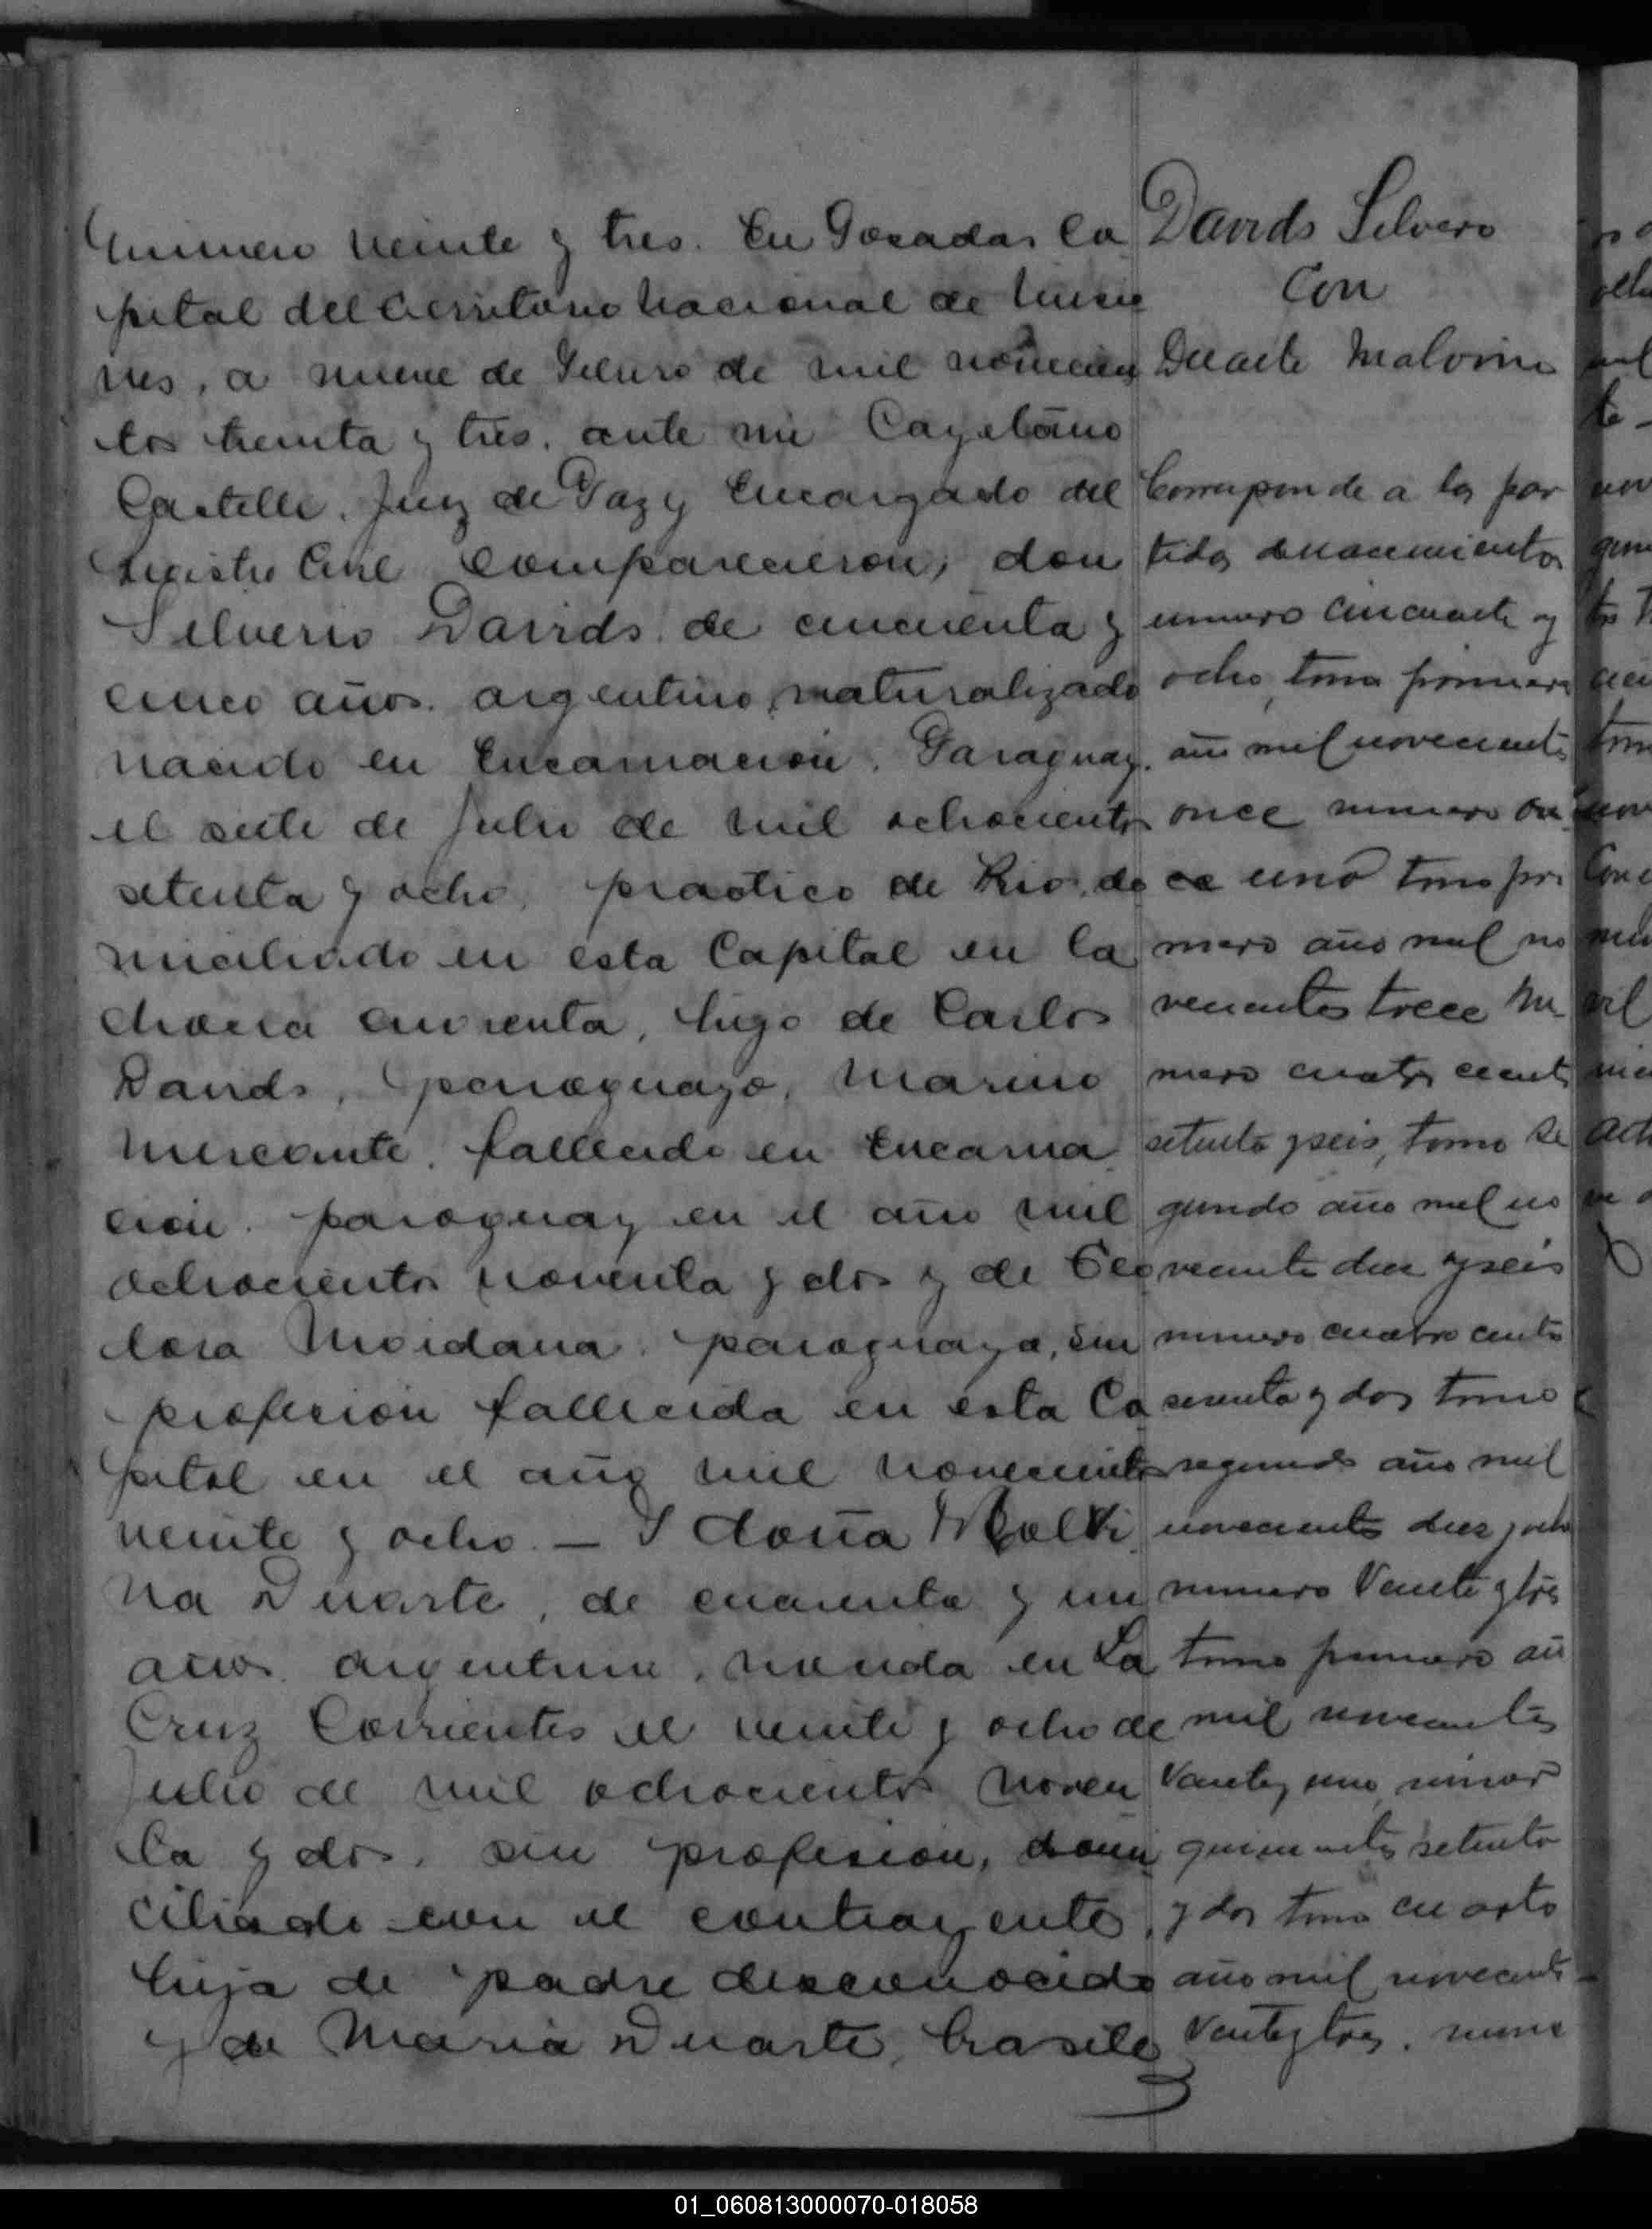 Numero veinte y tres. En Posadas Ca
pital del territorio Nacional de Misio
nes, a nueve de Febrero de mil novecien
tos treinta y tres, ante mi Cayetano
Castelli, Juez de Paz y Encargado del
Registro Civil comparecieron, don
Silverio Davids de cincuenta y
cinco años. argentino naturalizado
nacido en Encarnación. Paraguay.
el siete de Julio de mil ochocientos
setenta y ocho, practico de Rio, do
miciliado en esta Capital en la
chacra cuarenta, hijo de Carlos
Davids, paraguayo, Marino
mercante, fallecido en Encarna
cion. paraguay en el año mil
ochocientos noventa y dos y de Teo
dora Moidana. paraguaya, sin
profesion fallecida en esta Ca
pital en el año mil novecientos
veinte y ocho. — Y doña Malvi
na Duarte, de cuarenta y un
años argentina, nacida en La
Cruz Corrientes el veinte y ocho de
Julio de mil ochocientos noven
ta y dos, sin profesion, domi
ciliado con el contrayente,
hija de padre desconocido
y de Maria Duarte, brasile
Davids Silvero
Con
Duarte Malvina
Corresponde a las par
tidas de nacimientos
numero cincuenta y
ocho, tomo primero
año mil novecientos
once numero
uno tomo pri
mero año mil no
vecientos trece Nu
mero cuatro cientos
setenta y seis, tomo se
gundo año mil no
vecientos diez y seis
numero cuatro cientos
y dos tomo
segundo año mil
novecientos diez y ocho
numero Veinte y tres
tomo primero año
mil novecientos
Veinte y uno, numero
quinientos setenta
y dos tomo cuarto
año mil novecientos
Veinte y tres. nume
01_060813000070-018058